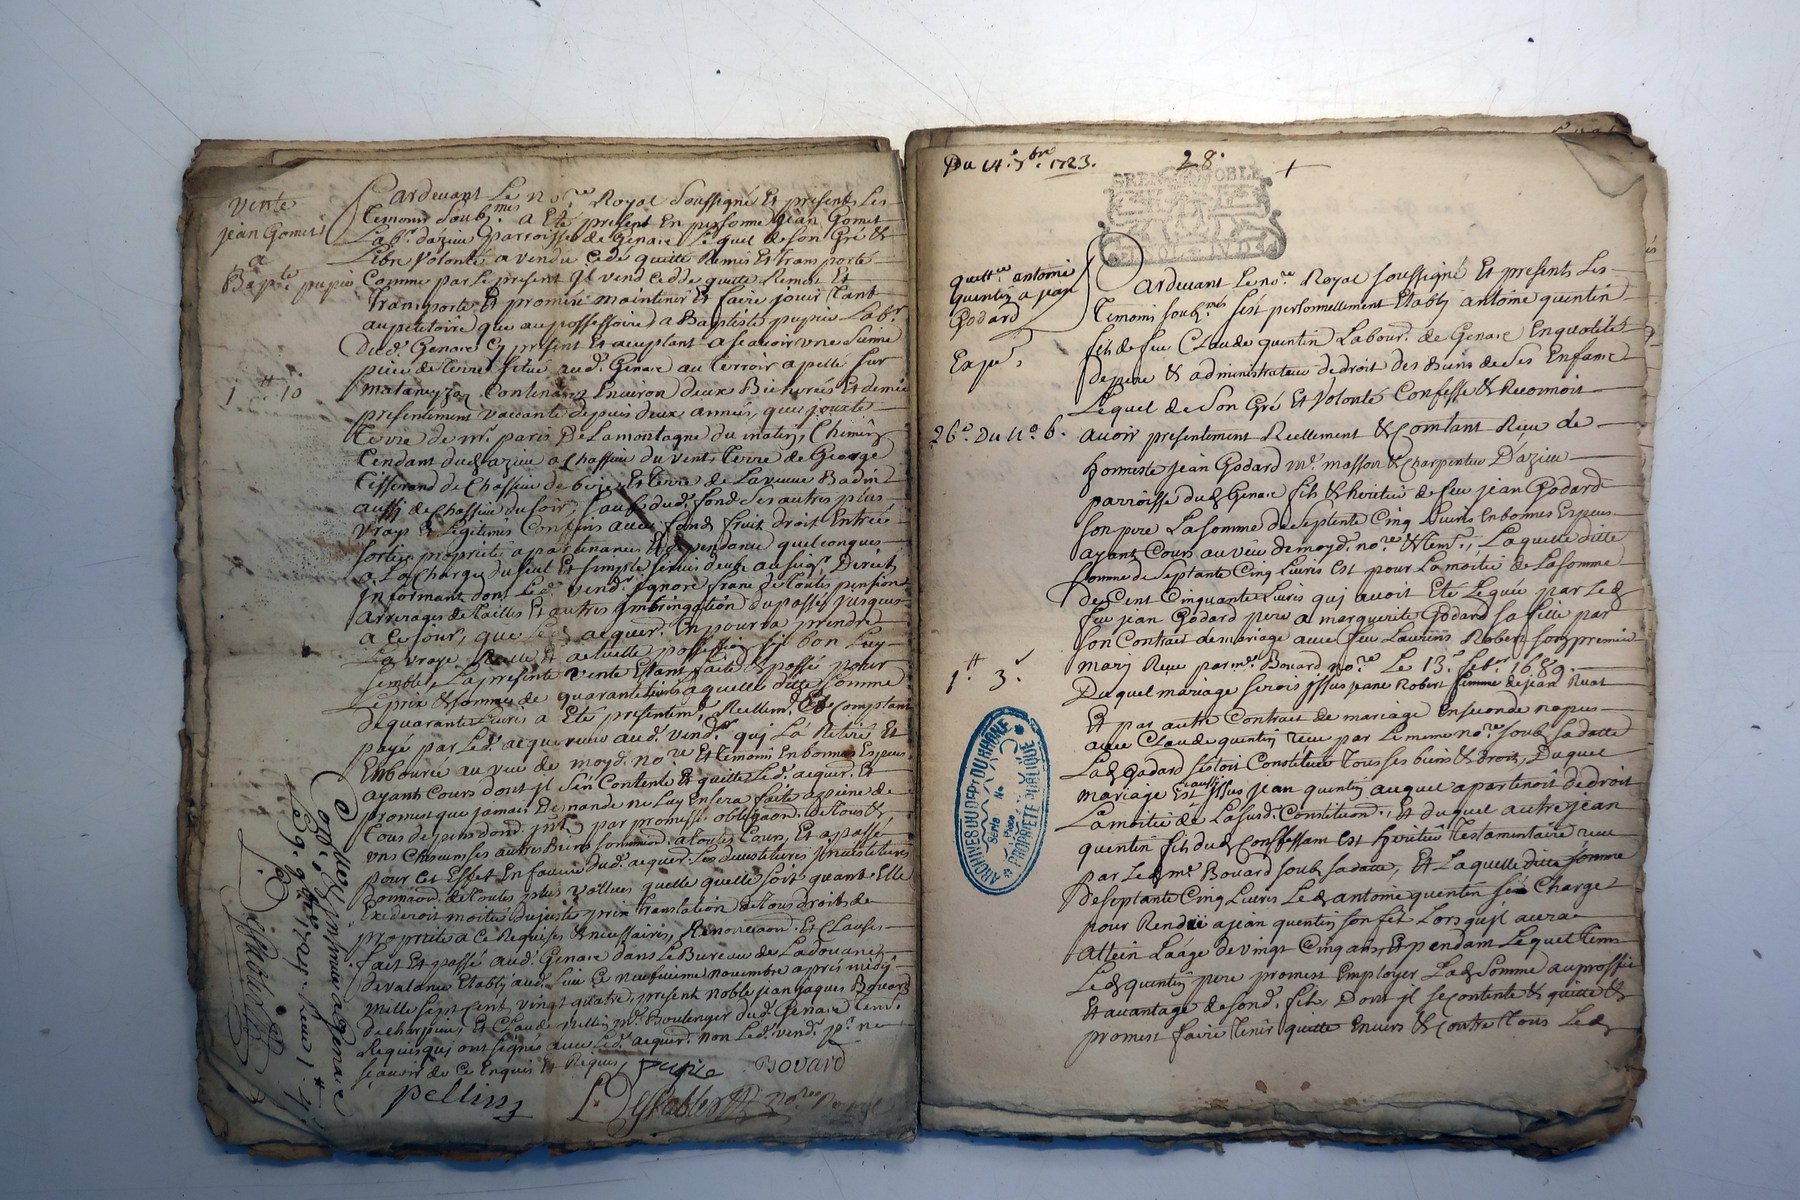 vente
jean Gomet
a
Bapte pupier
1 ^tt 10
Pardevant Le nore Royal soussigné Et presents Les
temoins soubsnes a Eté present En personne jean Gomet
Labr. d'azieu parroisse de Genace Lequel de son Gré &
Libre Volonté a vendu cedé quitté Remis Et transporté
Comme par Le present jl vend cedde quitte Remet Et
transporte Et promést maintenir Et faire jouir tant
au petitoire que au possessoire a Baptiste pupier Labr.
dud. Genace cy present Et aceptant a sçavoir une sienne
piece de terre située aud. Genace au terroir apellé sur
Contenant Environ deux Bicherées Et demie
presentement vacante depuis deux années, qui jouxte
terre de mr. paris De Lamontagne du matin, Chemin
tendant dud azieu a Chassieu du vent, terre de George
tisserand de Chassieu de bize, Et terre de La veuve Badin
aussi de Chassieu du soir, sauf dud. fond ses autres plus
vrays & Legitimes Confins avec fond, fruit, droit Entrée
sorties proprietés apartenances Et dependances quelconques
a La charge du seul Et simple servis deub au seigr. Direct
jnformant dont Led. vendr. jgnore franc de toutes pensions
arrerages de tailles Et autres jmbringation du passé jusques
a Ce jour, que Led. acquer. En pourra prendre
La vraye Reelle Et actuelle possession si bon Luy
semble, La presente vente Estant faite & passée pour
Le prix & somme de quarante Livres Laquelle ditte somme
de quarante Livres a Eté presentemt. Reellemt. & comptant
payé par Led. acquereur aud. vendr. qui La Retiré Et
Emboursé au veu de moyd. nore Et temoins En bonnes Especes
ayant Cours dont jl s'en Contente Et quitte Led. acquer. Et
promést que jamais Demande ne Luy En sera faite a peine de
tous depens dom. jnt. par promesse obligaon. de tous &
uns Chacuns ses autres Biens soummion. a toutes Cours, Et a passé
pour Cet Effet En faveur dud. acquer. Les devestitures jnvestitures
Donnaon. de toutes plus vallues quelle quelle soit quant Elle
Exederoit moitié du juste prix translation de tous droits de
proprieté a ce Requises & necessaires, Renonciaon. Et Clauses
fait Et passé aud. Genace dans Le Bureau de La doüane
de valance Etably aud. Lieu Ce neufvieme novembre après midy
mille sept cent vingt quatre, present noble jean jaques Bovard
de charpieu, Et Claude pellin mr. Boulenger dud. Genace tem.
Requis qui ont signés avec Led. acquer. non Led. vendr. pr. ne
sçavoir de Ce Enquis Et Requis, pupie Bovard
pellin nore Royal
Conllé & jnsinué a Genace
Le 9. 9bre 1724.
Du 14e. 7bre. 1723.
28.
GRENOBLE
quittce antoine
quentin a jean
Godard
Expe.
26e. Du No. 6.
1 ^tt 3 s
Pardevant Le nore Royal soussigné Et presents Les
temoins soubnés s'ést personnellement Etably antoine quentin
fils de feu Claude quentin Labour. de Genace En qualité
de pere & administrateur de droit des Biens de ses Enfans
Lequel de son Gré Et volonté Confesse & Reconnoit
avoir presentement Reellement & Comtant Reçu de
honneste jean Godard mr. masson & charpentier D'azieu
parroisse dud Genace fils & heritier de feu jean Godard
son pere La somme de septente Cinq Livres En bonnes Especes
ayant Cours au veu de moyd. nore & tem., Laquelle ditte
somme de septante Cinq Livres Est pour La moitié de La somme
de Cent Cinquante Livres qui avoit Eté Leguée par Led
feu jean Godard pere a marguerite Godard sa fille par
son Contract de mariage avec feu Laurens Robert son premier
mary Reçu par me. Bouard nore Le 13e. febr. 1689.
Duquel mariage seroit jssus jeane Robert femme de jean Ruat
Et par autre Contract de mariage En seconde nopces
avec Claude quentin reçu par Le meme nore soub sa datte
Lad Godard s'estoit Constituée tous ses biens & droits, Duquel
mariage Est aussi jssus jean quentin auquel apartenoit de droit
La moitié de La susd. Constitution. Et duquel autre jean
quentin fils dud Confessant est heritier testamentaire reçu
par Led me. Bouard soub sa datte, Et Laquelle ditte somme
de septante Cinq Livres Led antoine quentin s'ést Chargé
pour Rendre a jean quentin son fils Lorsqu'jl aura
attein L'aage de vingt Cinq ans, Et pendant Lequel tems
Led quentin pere promest Employer Lad somme au proffit
Et avantage de sond. fils, Dont jl se contente & quitte &
promest faire tenir quitte Envers & Contre tous Led
ARCHIVES DU DEPT DU RHÔNE
Série
No
Pièce
PROPRIÉTÉ PUBLIQUE